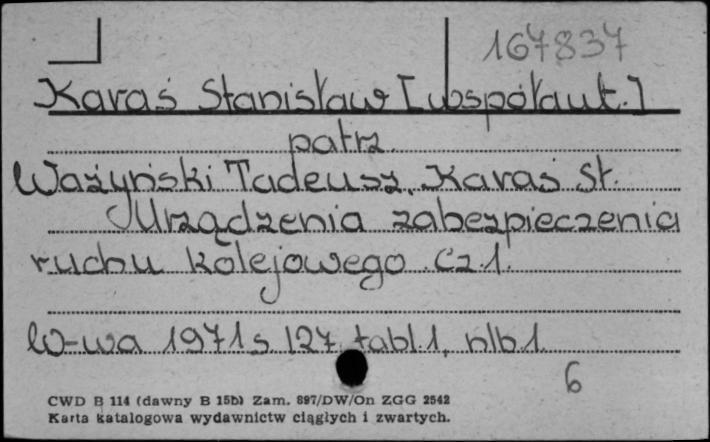 167837
Karaś Stanisław [współaut.]
patrz
Ważyński Tadeusz, Karaś St.
Urządzenia zabezpieczenia
ruchu kolejowego. Cz.1.
W-wa 1971 s 127, tabl.1, nlb 1.
6
CWD B 114 (dawny B 15b) Zam. 897/DW/On ZGG 2542
Karta katalogowa wydawnictw ciągłych i zwartych.